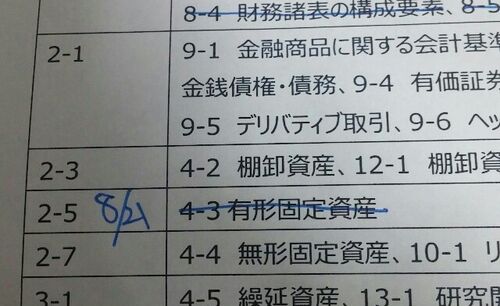 8-4 財務諸表の構成要素、8-5
2-1 9-1 金融商品に関する会計基準
金銭債権・債務、9-4 有価証券
9-5 デリバティブ取引、9-6 ヘッ
2-3 4-2 棚卸資産、12-1 棚卸
2-5 8/21 4-3 有形固定資産
2-7 4-4 無形固定資産、10-1 リ
3-1 4-5 繰延資産、13-1 研究開